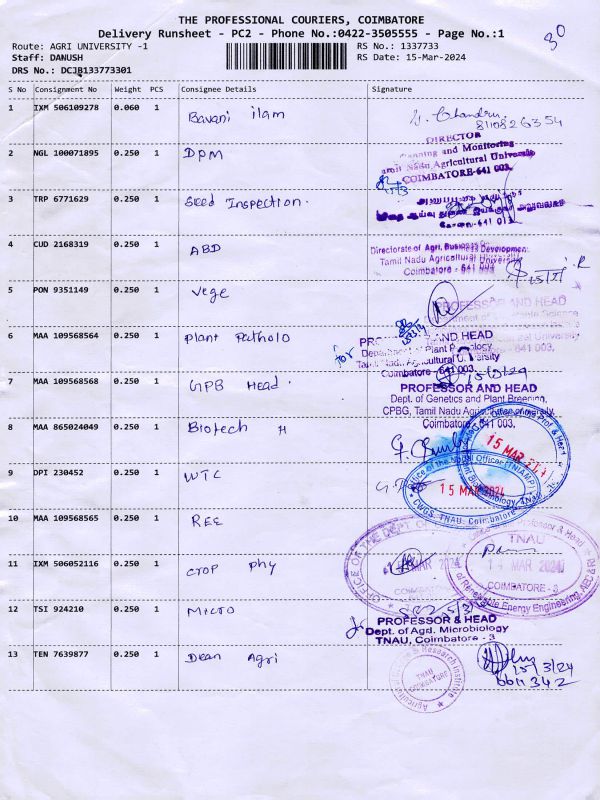 THE PROFESSIONAL COURIERS, COIMBATORE
Delivery Runsheet - PC2 - Phone No.:0422-3505555 - Page No.:1
30
Route: AGRI UNIVERSITY -1
RS No.: 1337733
Staff: DANUSH
RS Date: 15-Mar-2024
DRS No.: DCJB133773301
S No Consignment No Weight PCS Consignee Details Signature
1 IXM 506109278 0.060 1 Bavani ilam
8110826354
2 NGL 100071895 0.250 1 DPM
DIRECTOR
Planning and Monitoring
Tamil Nadu Agricultural University
COIMBATORE-641 003.
3 TRP 6771629 0.250 1 Seed Inspection.
4 CUD 2168319 0.250 1 ABD
Directorate of Agri. Business Development
Tamil Nadu Agricultural University
Coimbatore - 641 003.
5 PON 9351149 0.250 1 Vege
PROFESSOR AND HEAD
6 MAA 109568564 0.250 1 Plant Patholo
for
PROFESSOR AND HEAD
Department of Plant Pathology
Tamil Nadu Agricultural University
Coimbatore - 641 003.
15/3/24
7 MAA 109568568 0.250 1 GPB Head.
PROFESSOR AND HEAD
Dept. of Genetics and Plant Breeding,
CPBG, Tamil Nadu Agricultural University,
Coimbatore - 641 003,
8 MAA 865024049 0.250 1 Biotech H
15 MAR 2024
9 DPI 230452 0.250 1 WTC
Office of the Nodal Officer (TNIAMP)
15 MAR 2024
CWGS, TNAU, Coimbatore
10 MAA 109568565 0.250 1 REE
OFFICE OF THE DEPT. OF
Professor & Head
TNAU
MAR 2024
COIMBATORE - 3
of Renewable Energy Engineering, AEC&RI
11 IXM 506052116 0.250 1 crop phy
MAR 2024
12 TSI 924210 0.250 1 Micro
PROFESSOR & HEAD
Dept. of Agrl. Microbiology
TNAU, Coimbatore - 3
13 TEN 7639877 0.250 1 Dean Agri
Agricultural College & Research Institute
TNAU
COIMBATORE
15/3/24
6611342